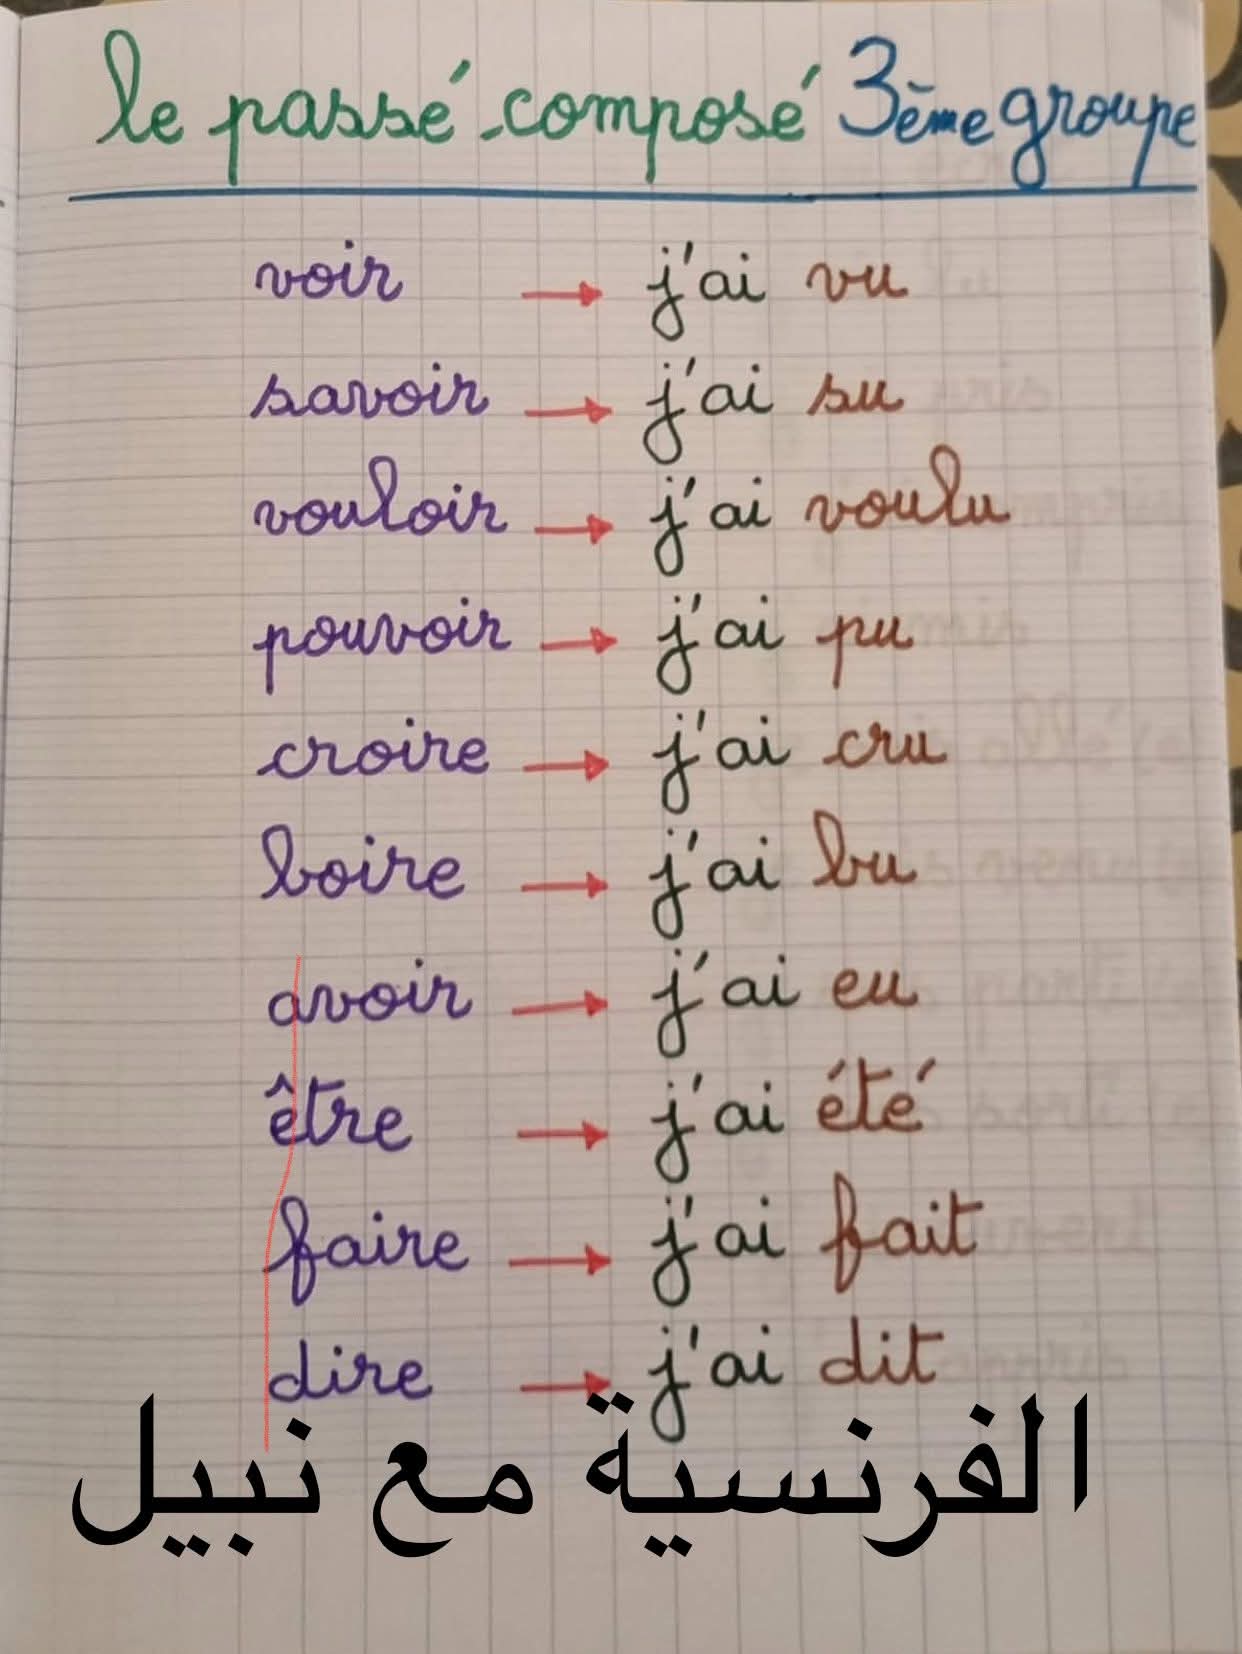 le passé composé 3ème groupe
voir → j'ai vu
savoir → j'ai su
vouloir → j'ai voulu
pouvoir → j'ai pu
croire → j'ai cru
boire → j'ai bu
avoir → j'ai eu
être → j'ai été
faire → j'ai fait
dire → j'ai dit
الفرنسية مع نبيل